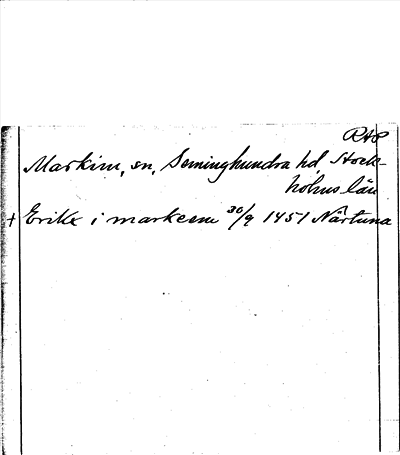 RAP
Markim, sn, Seminghundra hd Stock-
holms län
+ Erikx i markem 30/9 1451 Närtuna